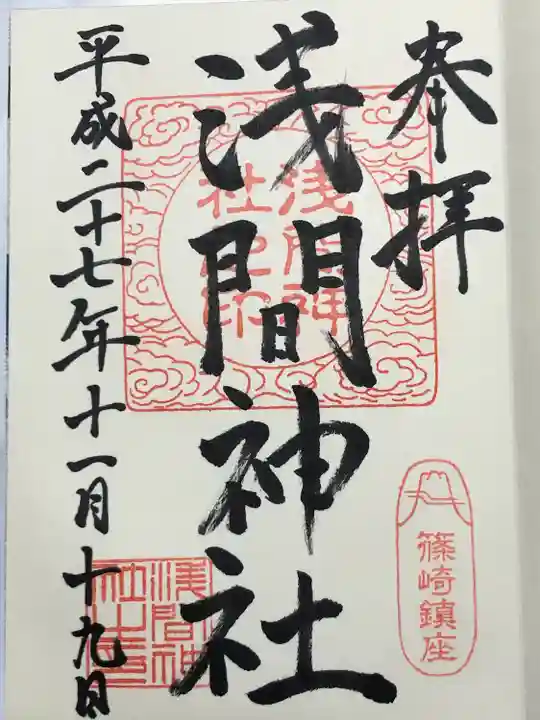 奉拝
篠崎鎮座
浅間神社
浅間神
社之印
平成二十七年十一月十九日
浅間神